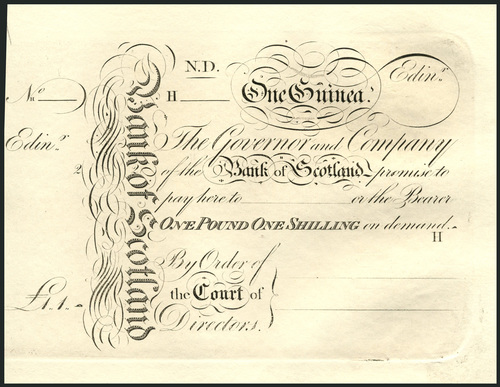 N.D.
No
H
One Guinea.
Edinr.
Bank of Scotland
Edinr.
The Governor and Company
2
of the Bank of Scotland promise to
pay here to or the Bearer
ONE POUND ONE SHILLING on demand.
H
By Order of
£1.1.
the Court of
Directors.